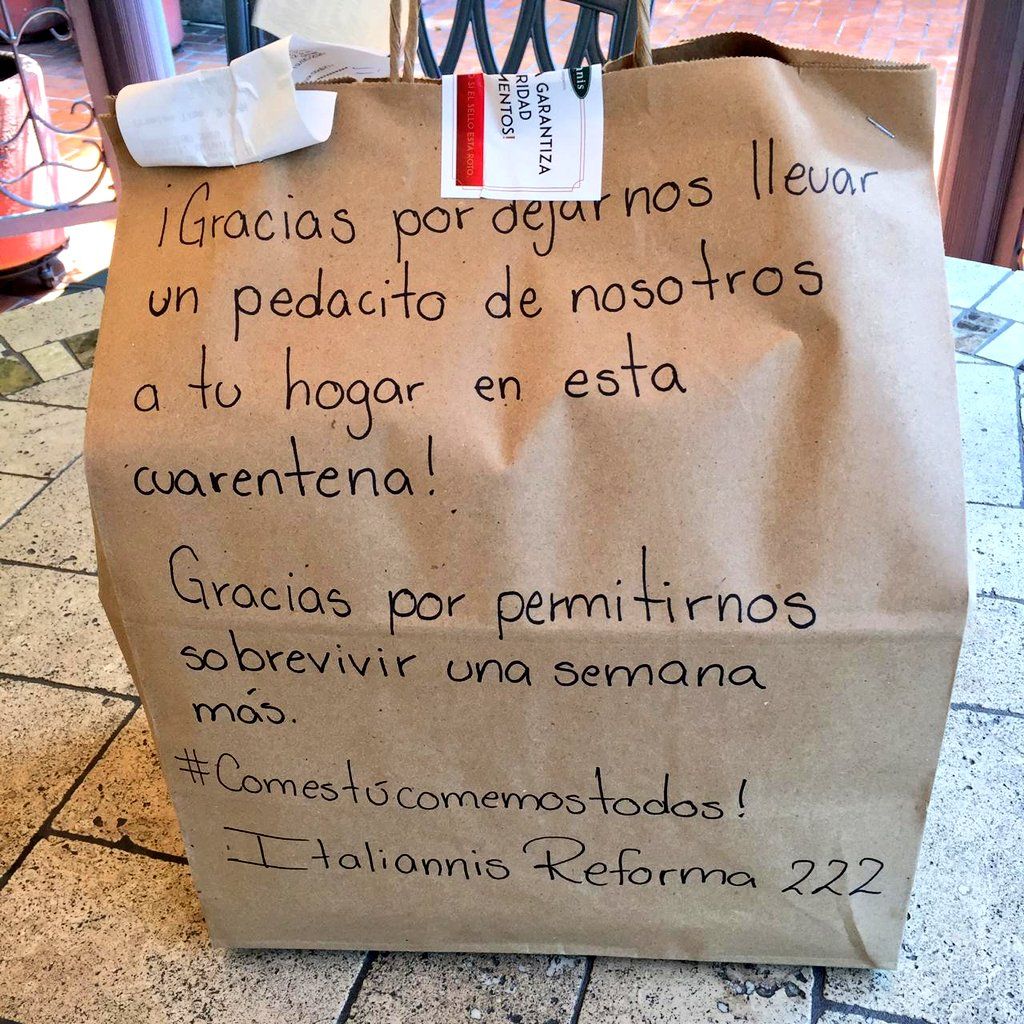 nis
GARANTIZA
RIDAD
MENTOS!
SI EL SELLO ESTA ROTO
¡Gracias por dejarnos llevar
un pedacito de nosotros
a tu hogar en esta
cuarentena!
Gracias por permitirnos
sobrevivir una semana
más.
#Comestúcomemostodos!
Italiannis Reforma 222